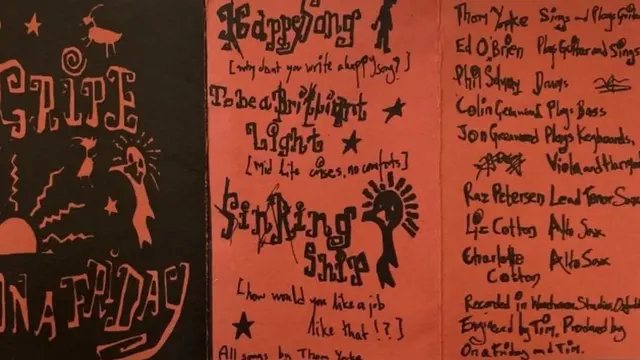 GRIPE
ON A FRIDAY
Happy Song
[why dont you write a happy song?]
To be a Brilliant
Light
[Mid Life crises, no comforts]
Sinking
Ship
[how would you like a job
like that!?]
All songs by Thom Yorke
Thom Yorke Sings and Plays Guitar
Ed O'Brien Plays Guitar and Sings
Phil Selway Drums
Colin Greenwood Plays Bass
Jon Greenwood Plays Keyboards,
Viola and Harm
Raz Petersen Lead Tenor Sax
Liz Cotton Alto Sax
Charlotte Alto Sax
Cotton
Recorded in Woodworm Studios, Oxford
Engineered by Tim. Produced by
On a Friday and Tim.